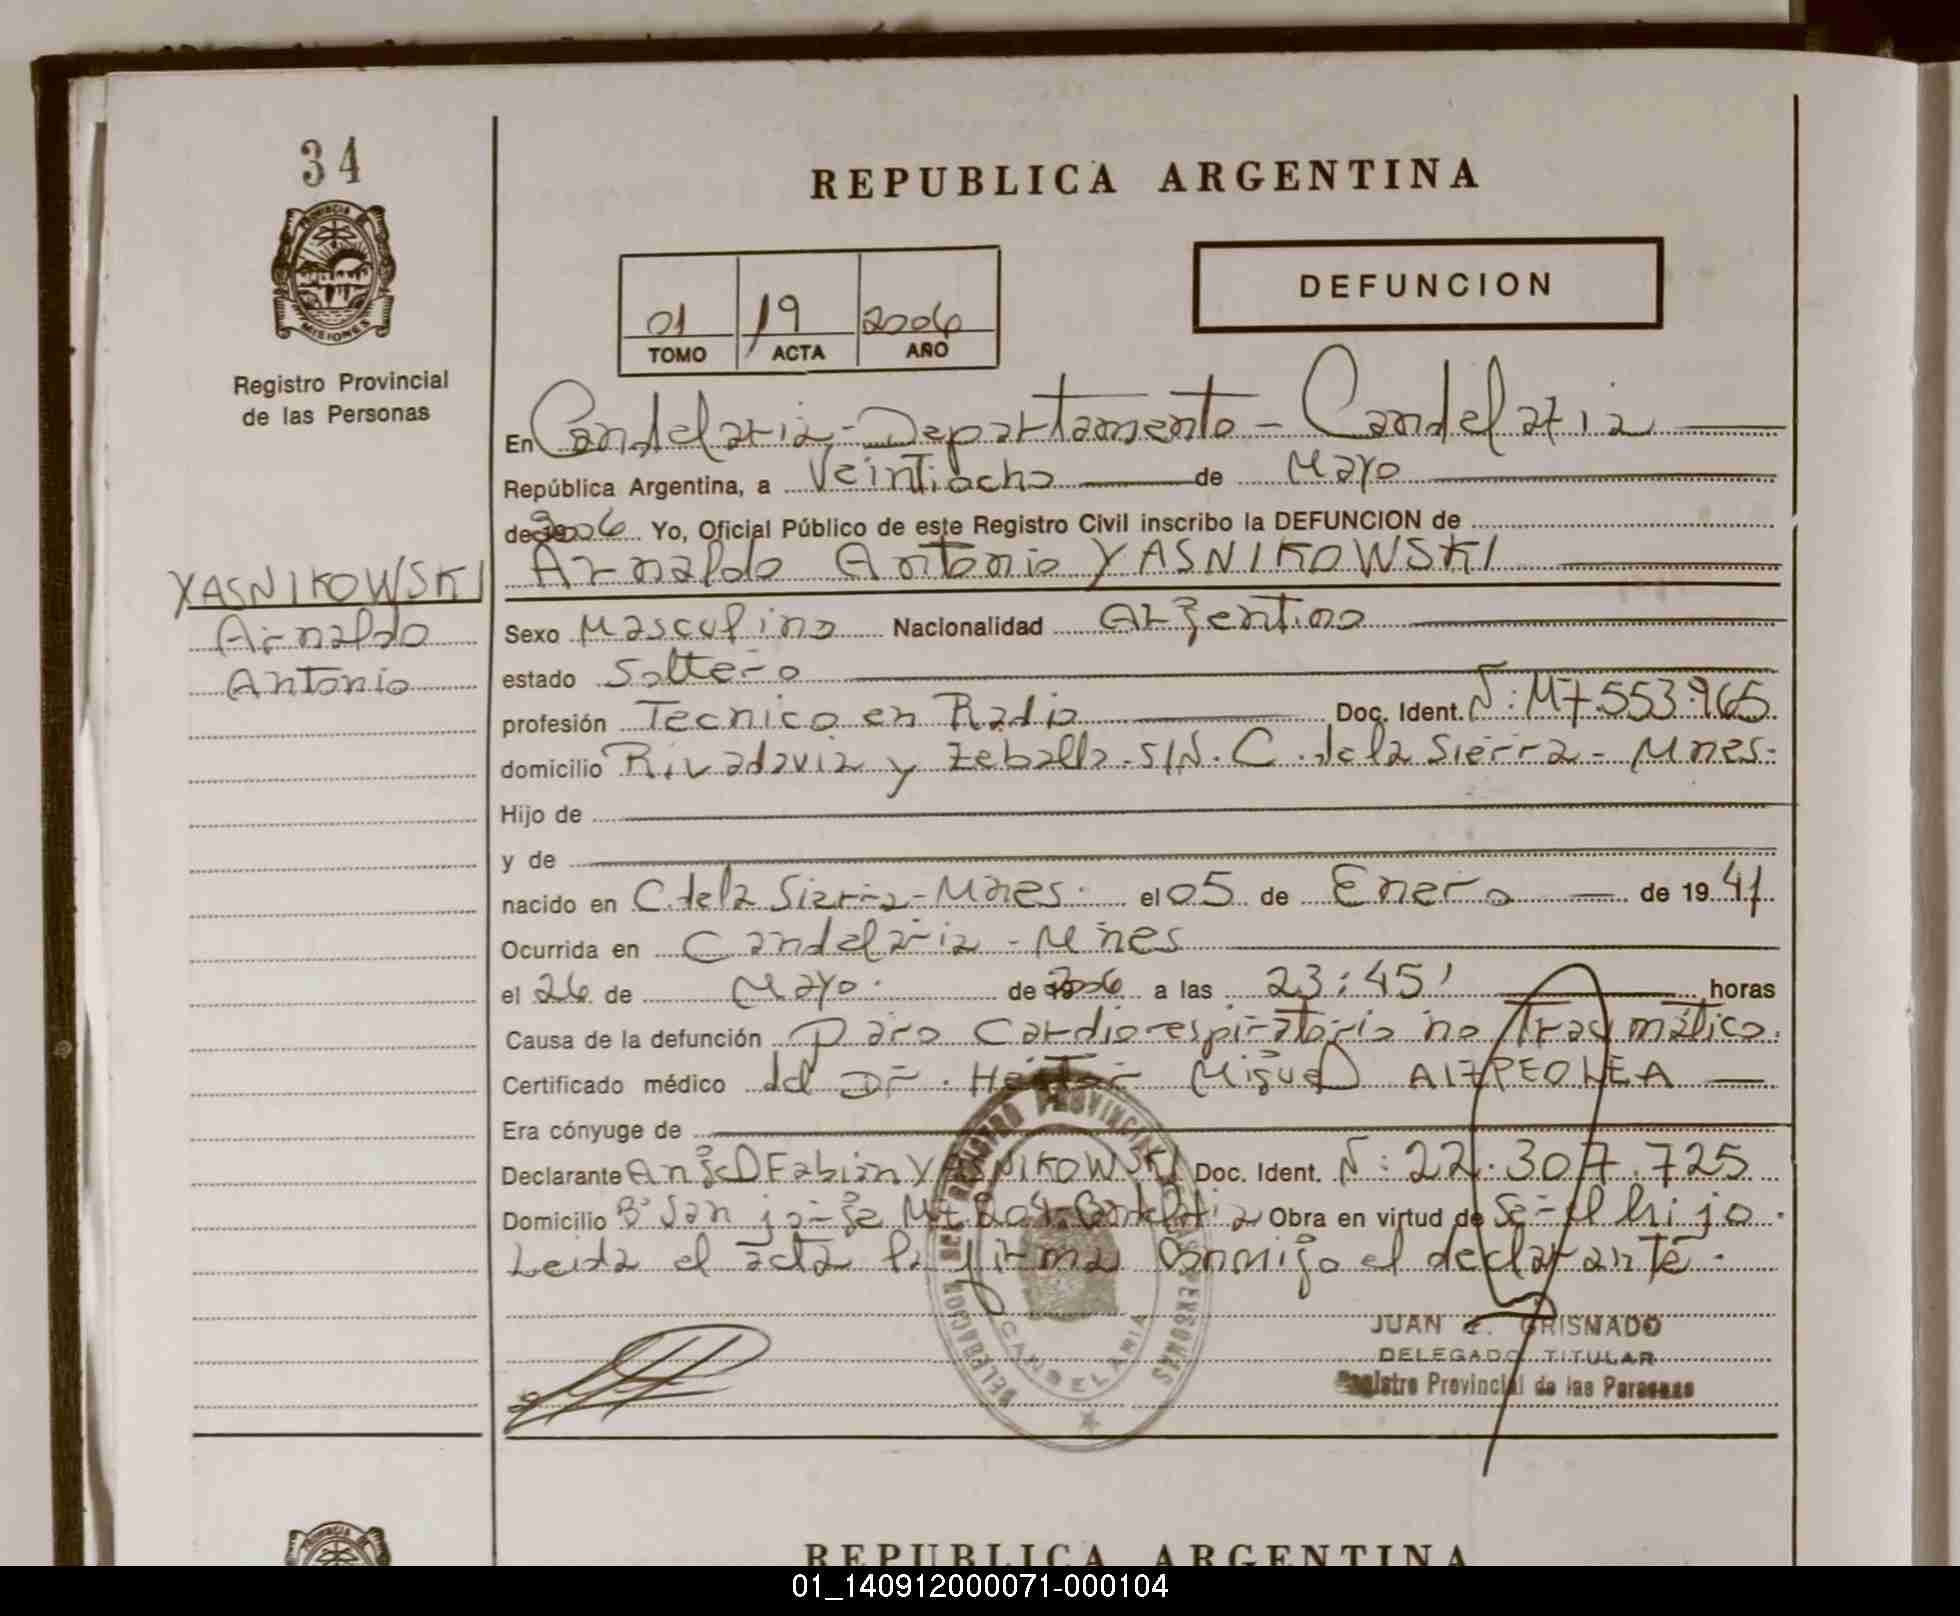 34
PROVINCIA DE
MISIONES
Registro Provincial
de las Personas
REPUBLICA ARGENTINA
01 19 2006
TOMO ACTA AÑO
DEFUNCION
En Candelaria - Departamento - Candelaria
República Argentina, a Veintiocho de Mayo
de 2006 Yo, Oficial Público de este Registro Civil inscribo la DEFUNCION de
YASNIKOWSKI
Arnaldo
Antonio
Arnaldo Antonio YASNIKOWSKI
Sexo Masculino Nacionalidad Argentino
estado Soltero
profesión Tecnico en Radio Doc. Ident. N: M7.553.965
domicilio Rivadavia y Zeballo. S/N. C. de la Sierra - Mnes.
Hijo de
y de
nacido en C. de la Sierra - Mnes. el 05 de Enero de 19 41
Ocurrida en Candelaria - Mnes
el 26 de Mayo. de 2006 a las 23:45' horas
Causa de la defunción paro Cardiorespiratorio no traumático.
Certificado médico del Dr. Héctor Miguel AIZPEOLEA
Era cónyuge de
Declarante Angel Fabián YASNIKOWSKI Doc. Ident. N: 22.307.725
Domicilio B° San jorge Candelaria Obra en virtud de Ser el hijo.
Leida el acta la firma conmigo el declarante.
DELEGACION DEL REGISTRO PROVINCIAL DE LAS PERSONAS
CANDELARIA
JUAN GRISNADO
DELEGADO TITULAR
Registro Provincial de las Personas
REPUBLICA ARGENTINA
01_140912000071-000104